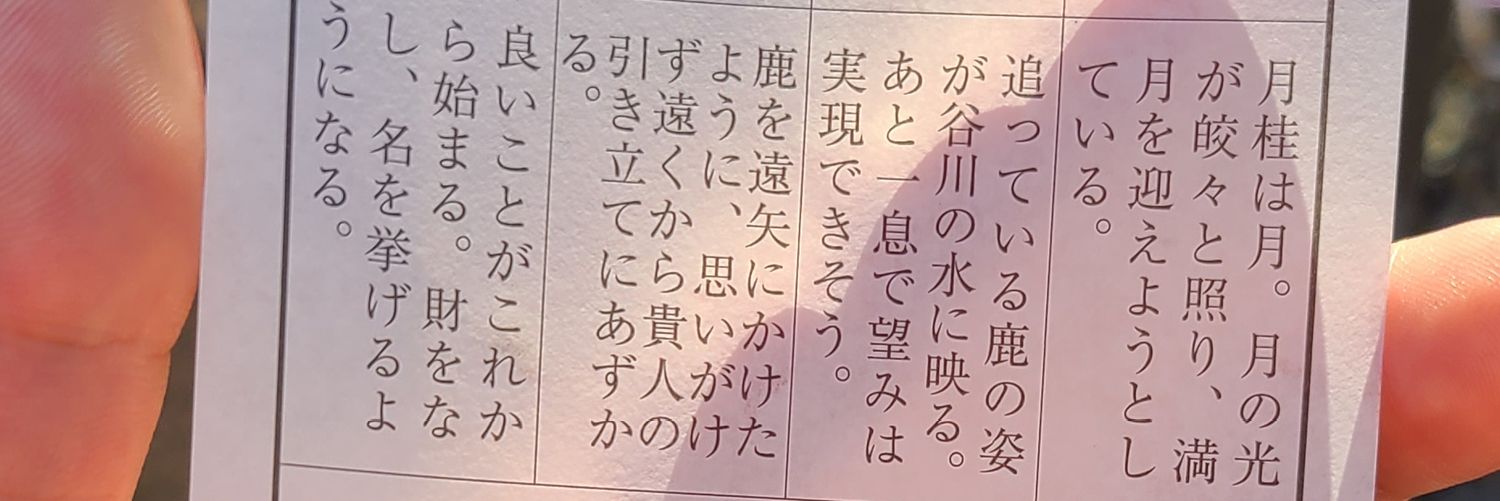 月桂は月。月の光
が皎々と照り、満
月を迎えようとし
ている。
追っている鹿の姿
が谷川の水に映る。
あと一息で望みは
実現できそう。
鹿を遠矢にかけた
ように、思いがけ
ず遠くから貴人の
引き立てにあずか
る。
良いことがこれか
ら始まる。財をな
し、名を挙げるよ
うになる。